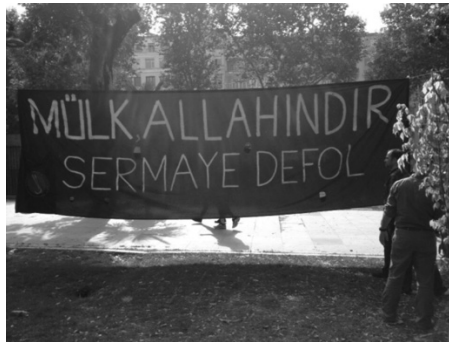 MÜLK, ALLAHINDIR
SERMAYE DEFOL